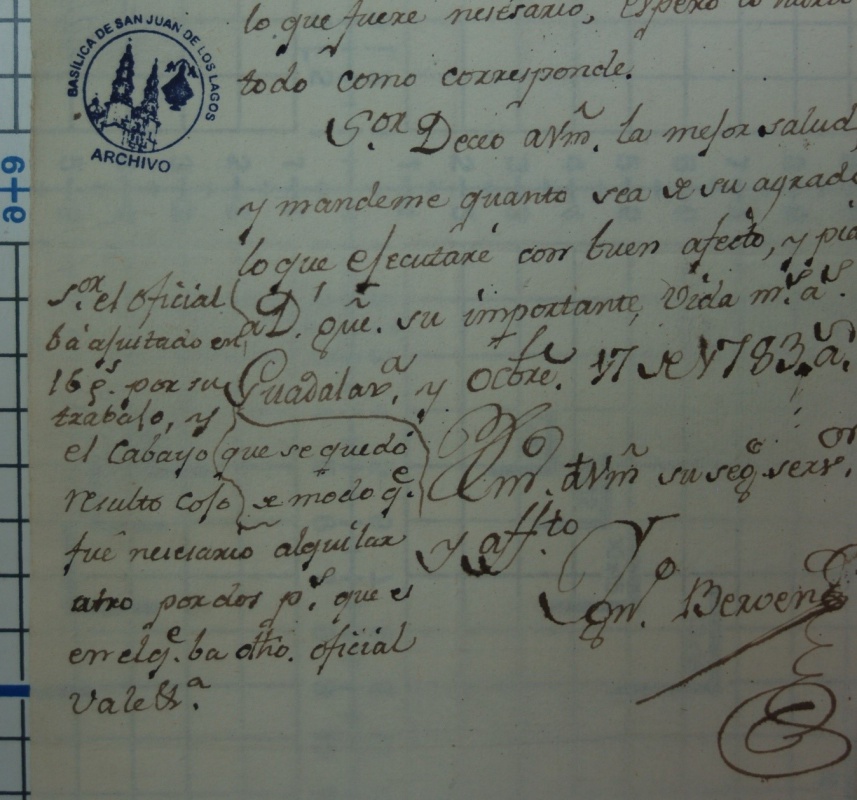 BASÍLICA DE SAN JUAN DE LOS LAGOS
ARCHIVO
lo que fuere nesesario, espero lo
todo como corresponde.
S.or Deceo a Vm. la mejor salud,
y mandeme quanto sea de su agrado
lo que ejecutaré con buen afecto, y pid
a D.s gũe. su importante Vida m.s a.s
Guadalax.a y Octbre. 17 de 1783 a.s
a Vm su seg.o serv.or
y aff.to
S.or el oficial
bá ajustado en
16 p.s por su
trabajo, y
el Cabayo que se quedó
resulto cojo de modo q.e
fué nesesario alquilar
otro por dos p.s que es
en el q.e ba dho. oficial
Vale